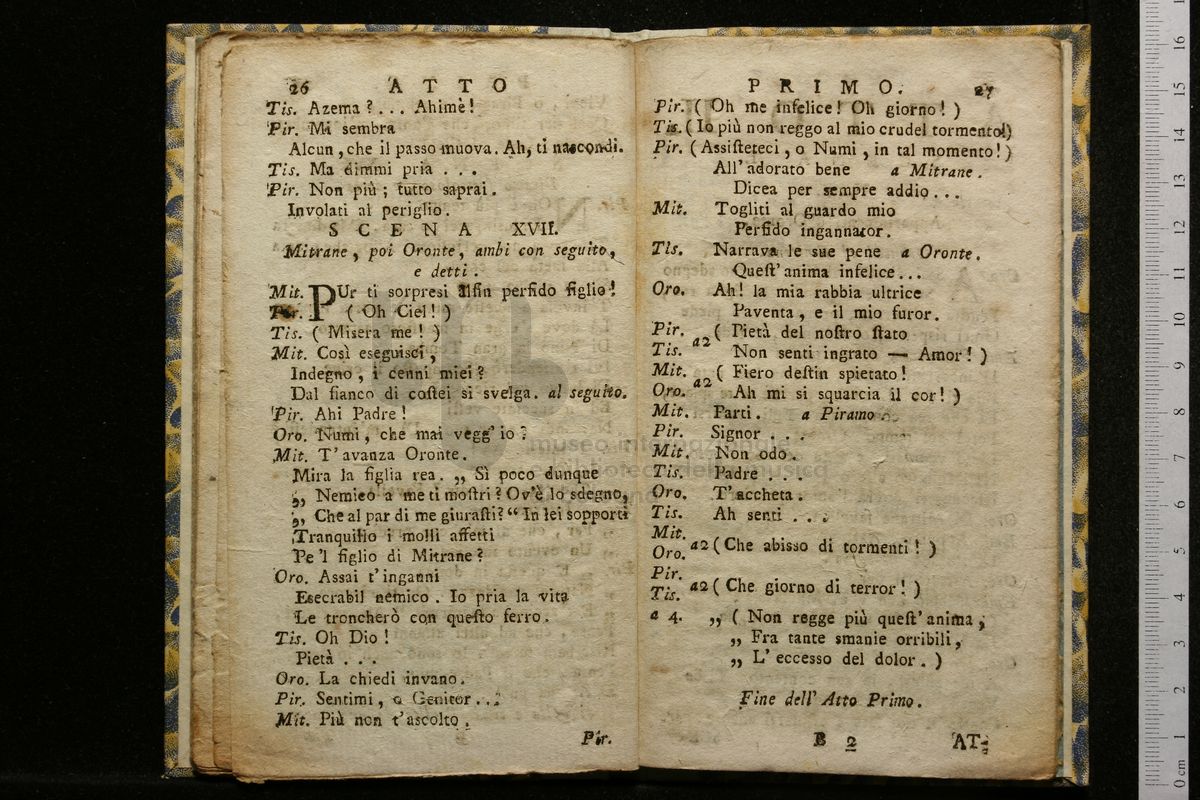 26 ATTO
Tis. Azema ?... Ahimè !
Pir. Mi sembra
Alcun , che il passo muova. Ah, ti nascondi.
Tis. Ma dimmi pria . . .
Pir. Non più ; tutto saprai .
Involati al periglio .
SCENA XVII.
Mitrane , poi Oronte, ambi con seguito ,
e detti .
Mit. PUr ti sorpresi alfin perfido figlio !
Pir. ( Oh Ciel ! )
Tis. ( Misera me ! )
Mit. Così eseguisci ,
Indegno , i cenni miei ?
Dal fianco di costei si svelga. al seguito.
Pir. Ahi Padre !
Oro. Numi , che mai vegg' io ?
Mit. T' avanza Oronte .
Mira la figlia rea . „ Sì poco dunque
„ Nemico a me ti mostri ? Ov'è lo sdegno,
„ Che al par di me giurasti? “ In lei sopporti
Tranquillo i molli affetti
Pe 'l figlio di Mitrane ?
Oro. Assai t' inganni
Esecrabil nemico . Io pria la vita
Le troncherò con questo ferro .
Tis. Oh Dio !
Pietà . . .
Oro. La chiedi invano .
Pir. Sentimi , o Genitor . . .
Mit. Più non t' ascolto .
Pir.
PRIMO. 27
Pir. ( Oh me infelice ! Oh giorno ! )
Tis. ( Io più non reggo al mio crudel tormento!)
Pir. ( Assisteteci , o Numi , in tal momento ! )
All' adorato bene a Mitrane .
Dicea per sempre addio . . .
Mit. Togliti al guardo mio
Perfido ingannator .
Tis. Narrava le sue pene a Oronte .
Quest' anima infelice . . .
Oro. Ah ! la mia rabbia ultrice
Paventa , e il mio furor .
Pir. a2 ( Pietà del nostro stato
Tis. Non senti ingrato — Amor ! )
Mit. a2 ( Fiero destin spietato !
Oro. Ah mi si squarcia il cor ! )
Mit. Parti . a Piramo
Pir. Signor . . .
Mit. Non odo .
Tis. Padre . . .
Oro. T' accheta .
Tis. Ah senti . . .
Mit.
Oro. a2 ( Che abisso di tormenti ! )
Pir.
Tis. a2 ( Che giorno di terror ! )
a 4. „ ( Non regge più quest' anima ,
„ Fra tante smanie orribili ,
„ L' eccesso del dolor . )
Fine dell' Atto Primo .
B 2 AT-